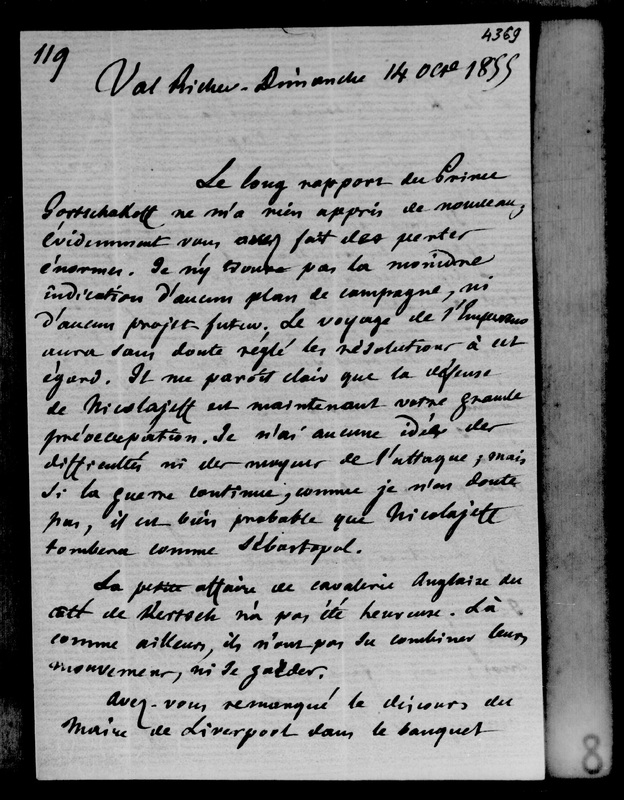 119
4369
Val Richer - Dimanche 14 Oct. 1855
Le long rapport du Prince
Gortschakoff ne m'a rien appris de nouveau ;
évidemment vous avez fait des pertes
énormes. Je n'y trouve pas la moindre
indication d'aucun plan de campagne, ni
d'aucun projet futur. Le voyage de l'Empereur
aura sans doute réglé les résolutions à cet
égard. Il me paroît clair que la défense
de Nicolajeff est maintenant votre grande
préoccupation. Je n'ai aucune idée des
difficultés ni des moyens de l'attaque ; mais
si la guerre continue, comme je n'en doute
pas, il est bien probable que Nicolajeff
tombera comme Sébastopol.
La petite affaire de cavalerie Anglaise du
côté de Kertsch n'a pas été heureuse. Là
comme ailleurs, ils n'ont pas su combiner leurs
mouvemens, ni se garder.
Avez-vous remarqué le discours du
Maire de Liverpool dans le banquet
8